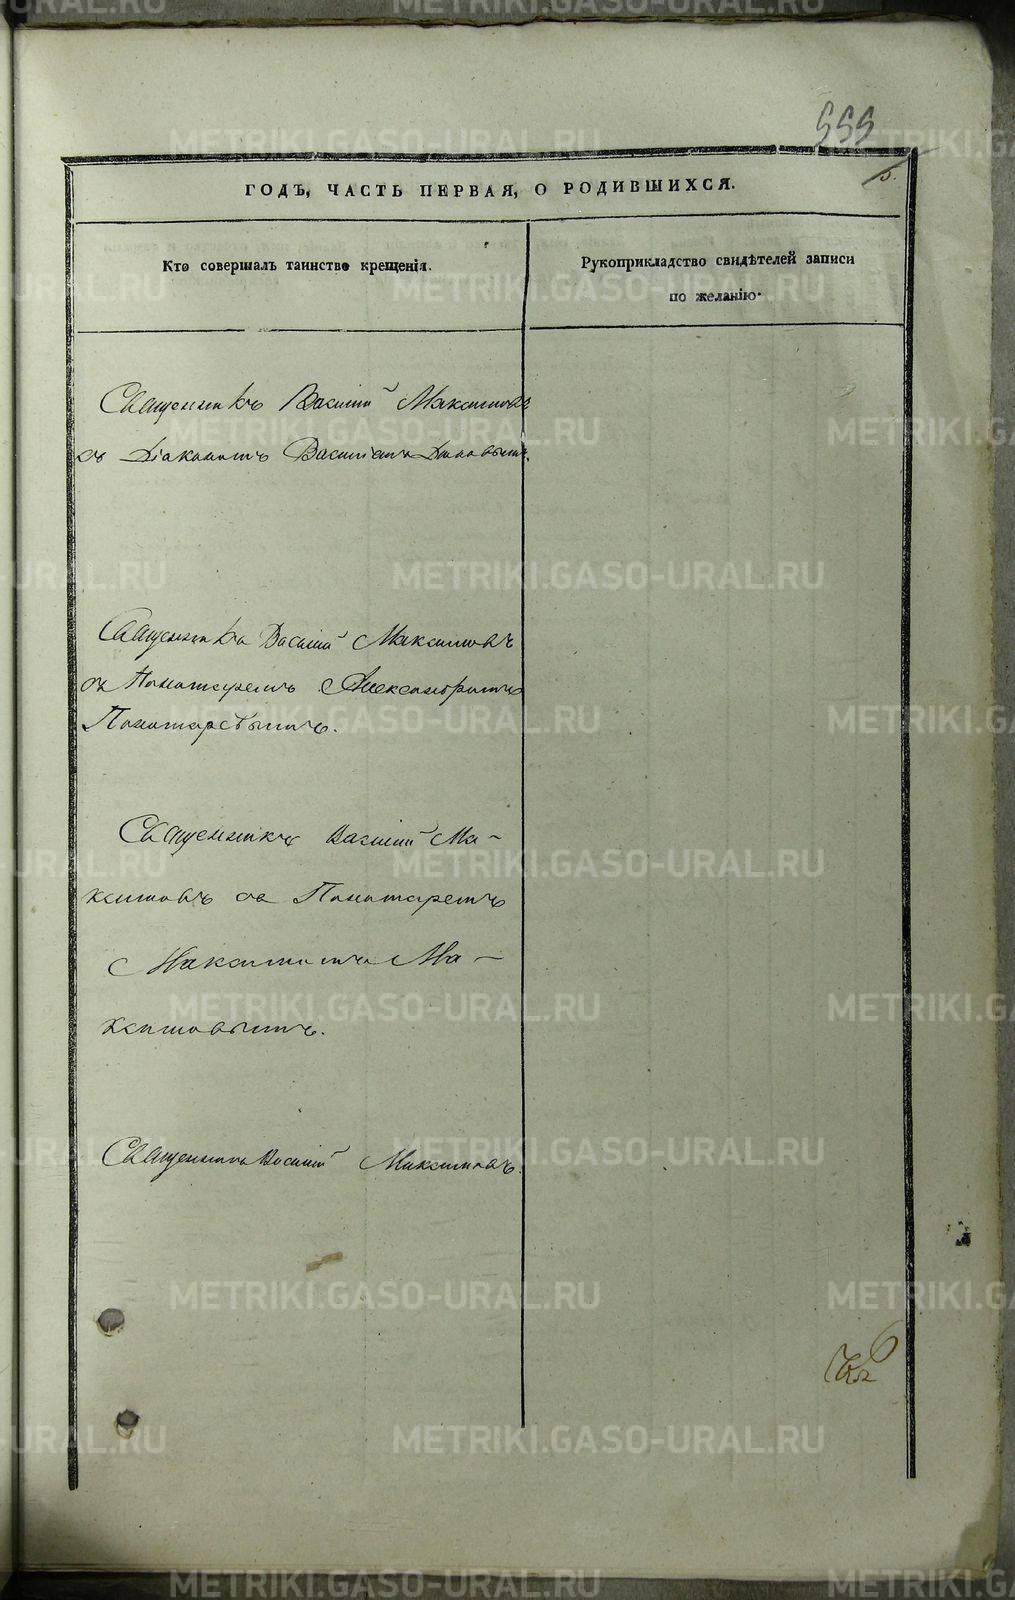 555
5.
ГОДЪ, ЧАСТЬ ПЕРВАЯ, О РОДИВШИХСЯ.
Кто совершалъ таинство крещенія.
Рукоприкладство свидѣтелей записи
по желанію.
Священникъ Василій Максимовъ
съ Діакономъ Василіемъ
Священникъ Василій Максимовъ
съ Пономаремъ Александромъ
Пономаревымъ.
Священникъ Василій Ма-
ксимовъ съ Пономаремъ
Максимомъ Ма-
ксимовымъ.
Священникъ Василій Максимовъ.
METRIKI.GASO-URAL.RU